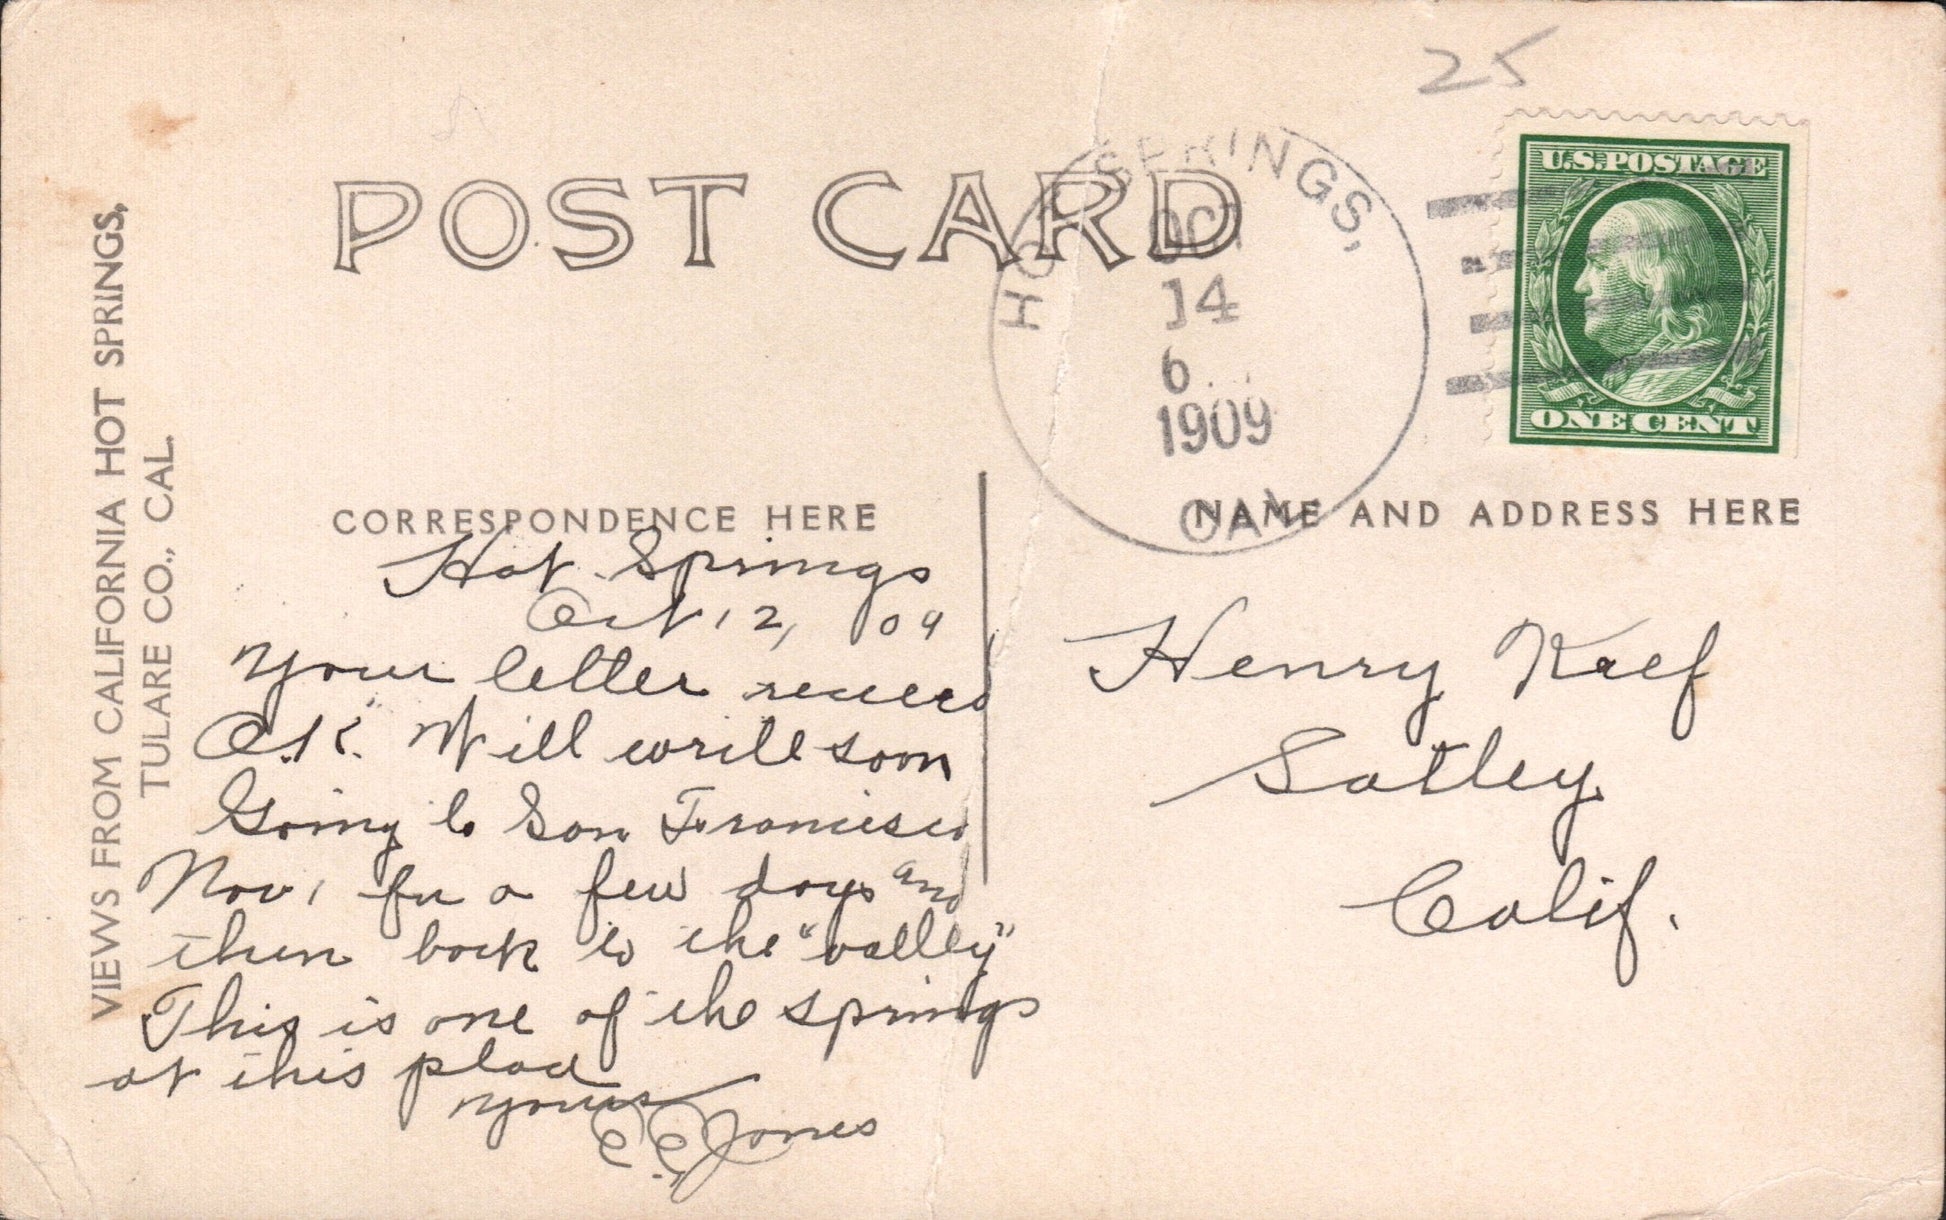 25
POST CARD
HOT SPRINGS,
OCT
14
6
1909
CAL
U.S. POSTAGE
ONE CENT
VIEWS FROM CALIFORNIA HOT SPRINGS,
TULARE CO., CAL.
CORRESPONDENCE HERE
NAME AND ADDRESS HERE
Hot Springs
Oct 12, 09
Your letter received
O.K. Will write soon
Going to San Francisco
Nov. for a few days and
then back to the "valley"
This is one of the springs
at this place
Yours
E.E. Jones
Henry Keef
Satley
Calif.